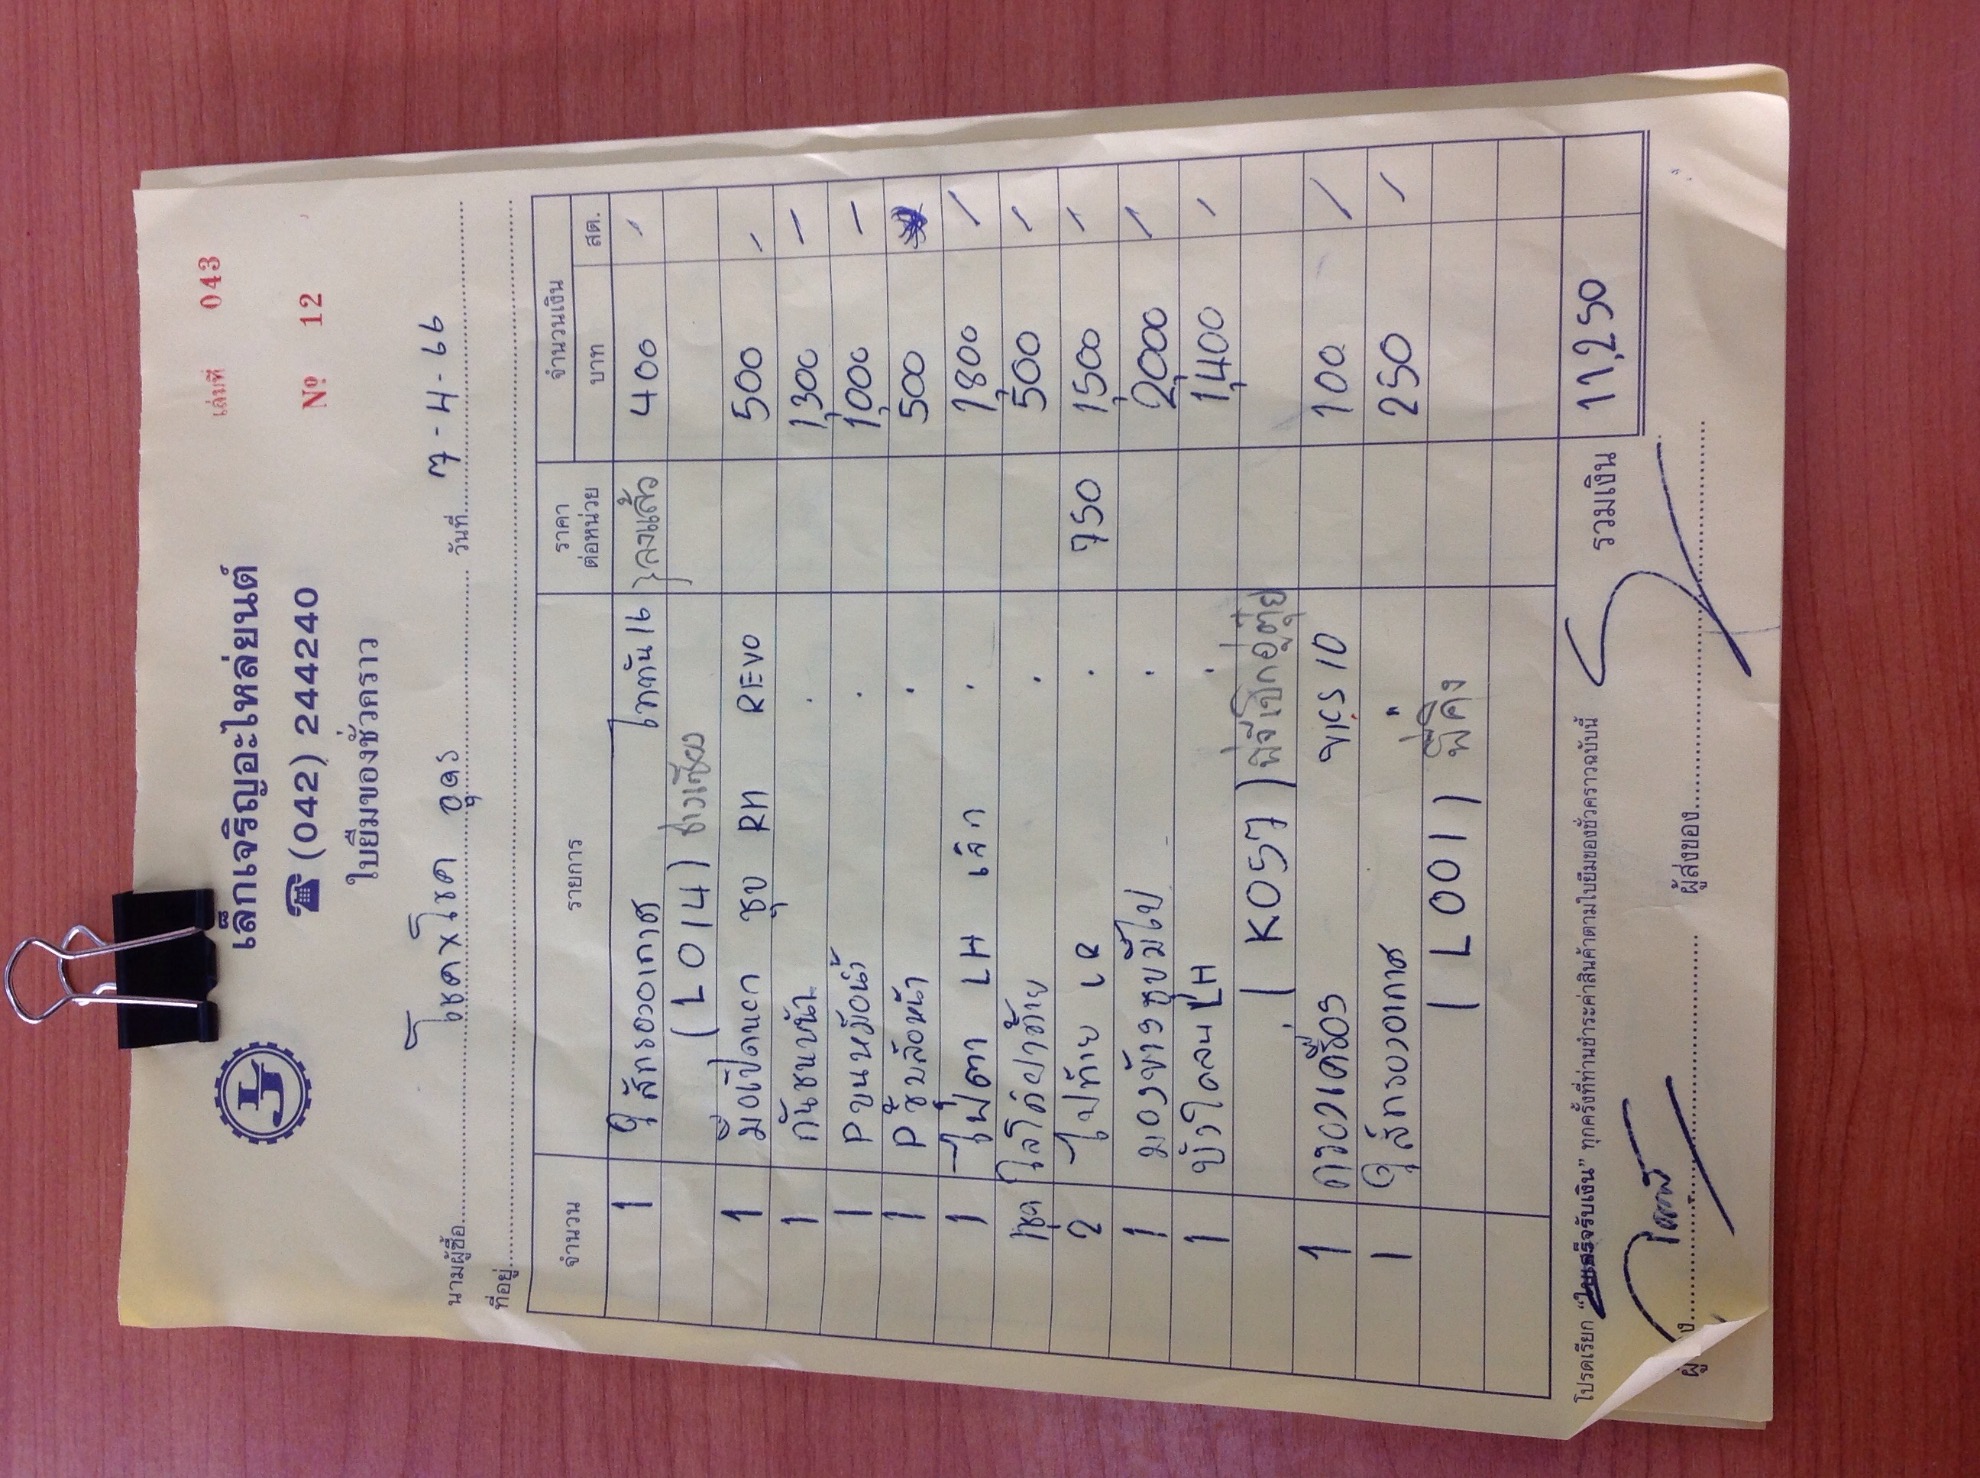 เล่มที่ 043
เล็กเจริญอะไหล่ยนต์
☎ (042) 244240
№ 12
ใบยืมของชั่วคราว
นามผู้ซื้อ โชคxโชค อุดร วันที่ 7-4-66
ที่อยู่
จำนวน รายการ ราคาต่อหน่วย จำนวนเงิน บาท สต.
1 ไส้กรองอากาศ ไททัน 16 }ลงแล้ว 400 -
(L014)
1 มือเปิดนอก ชุบ RH REVO 500 -
1 กันชนหน้า . 1,300 -
1 Pขนหม้อน้ำ . 1,000 -
1 Pซับล้อหน้า . 500
1 ไฟตา LH เล็ก . 1,800 -
1ชุด โลโก้ฝาท้าย . 500 -
2 ไฟท้าย LR . 750 1,500 -
1 มองข้างชุบมีไฟ . 2,000 -
1 บังโคลน LH . 1,400 -
(K057)
1 กรองเครื่อง VICS 10 100 -
1 ไส้กรองอากาศ " 250 -
(L001)
รวมเงิน 11,250
โปรดเรียก "ใบเสร็จรับเงิน" ทุกครั้งที่ท่านชำระค่าสินค้าตามใบยืมของชั่วคราวฉบับนี้
ผู้ส่งของ